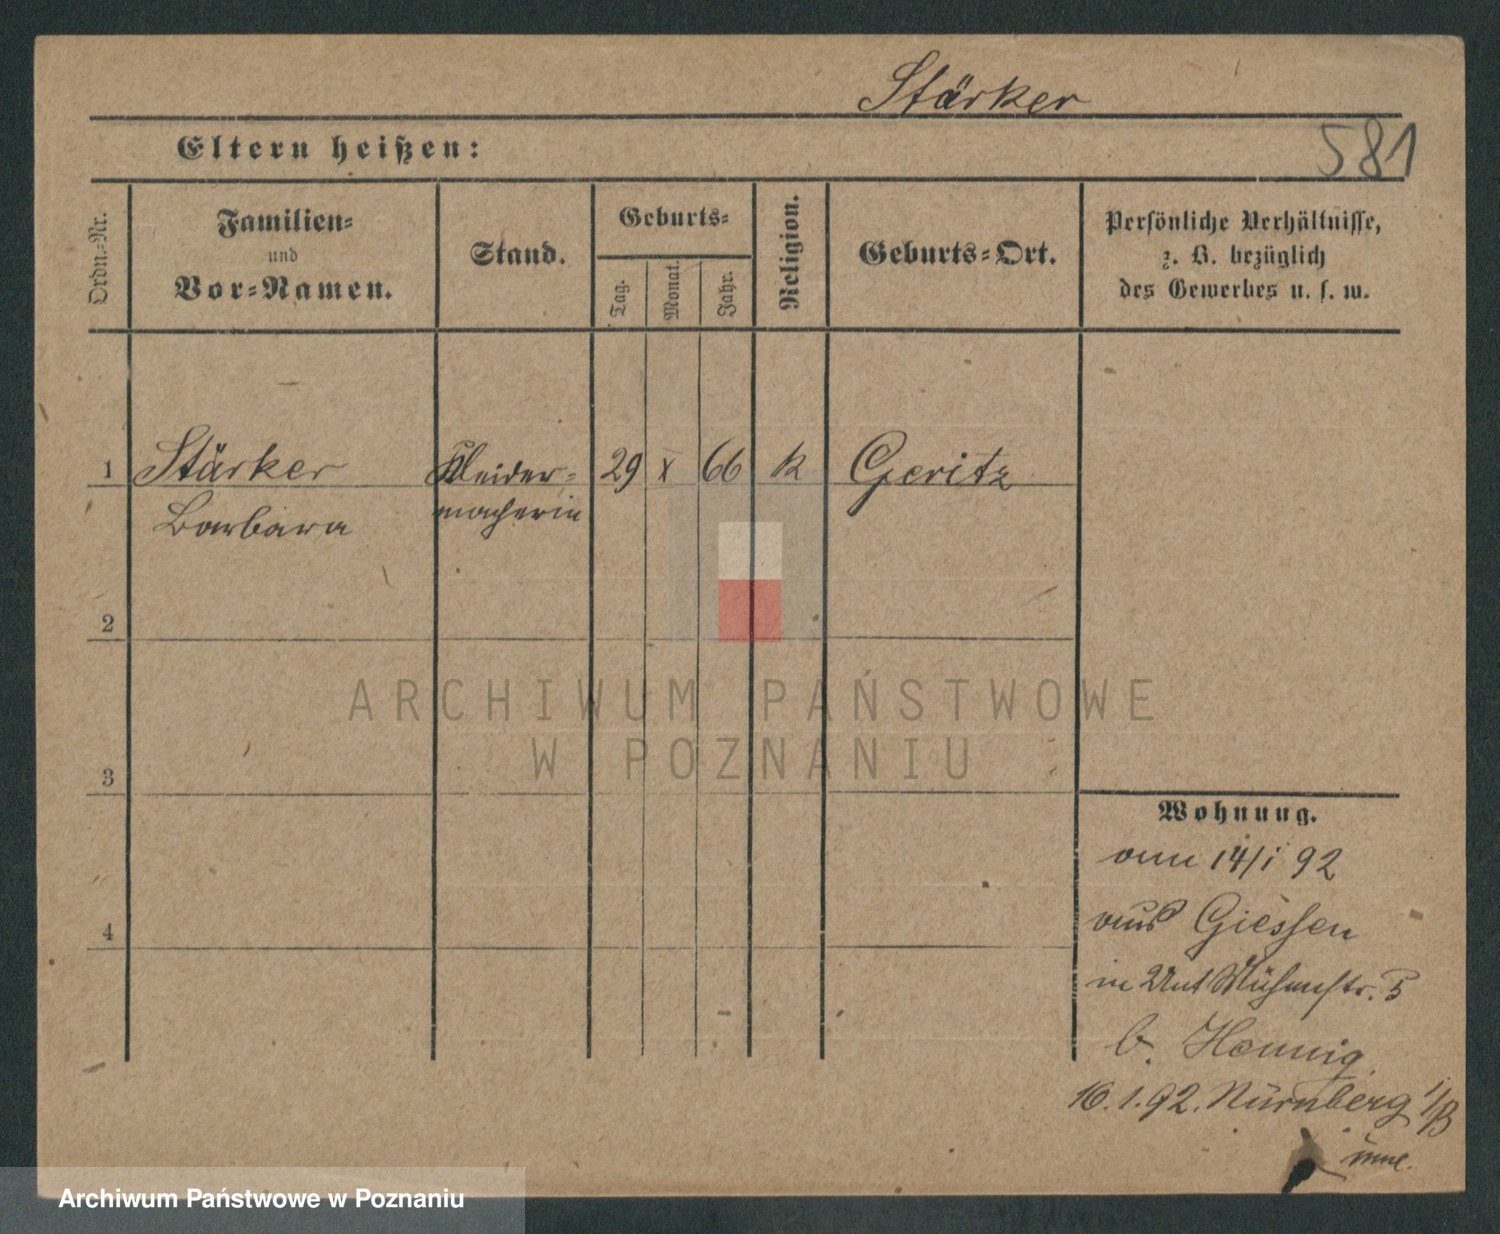 Stärker
Eltern heißen:
581
Ordn.-Nr.
Familien-
und
Vor-Namen.
Stand.
Geburts-
Tag.
Monat.
Jahr.
Religion.
Geburts-Ort.
Persönliche Verhältnisse,
z. B. bezüglich
des Gewerbes u. s. w.
1 Stärker Kleider- 29 X 66 k Geritz
Barbara macherin
2
ARCHIWUM PAŃSTWOWE
W POZNANIU
3
Wohnung.
14/1 92
4
aus Giessen
in Unt Mühlenstr. 5
b. Hennig
16.1.92. Nürnberg i/B
Archiwum Państwowe w Poznaniu